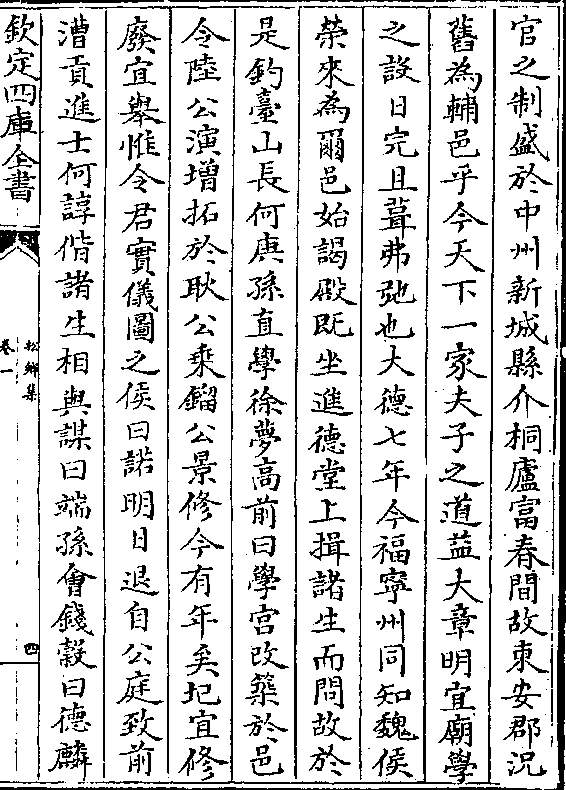 官之制盛於中州新城縣介桐廬富春間故東安郡況
舊為輔邑乎今天下一家夫子之道益大章明宜廟學
之設日完且葺弗弛也大德七年今福寧州同知魏侯
榮來為爾邑始謁殿既坐進德堂上揖諸生而問故於
是釣臺山長何庚孫直學徐夢高前曰學宮改築於邑
令陸公演増拓於耿公乗鎦公景修今有年矣圮宜修
廢宜舉惟令君實儀圖之侯曰諾明日退自公庭致前
漕貢進士何諄偕諸生相與謀曰端孫會錢穀曰德麟
欽定四庫全書
松鄉集
卷一
四